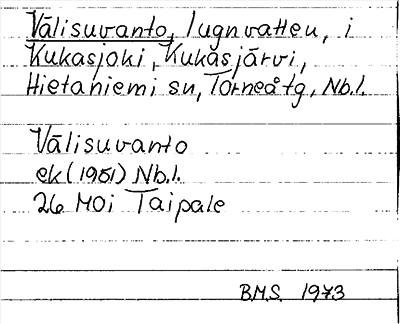 Välisuvanto, lugnvatten, i
Kukasjoki, Kukasjärvi,
Hietaniemi sn, Torneå tg, Nb.l.
Välisuvanto
ek (1951) Nb.l.
26 M0i Taipale
B.M.S. 1973